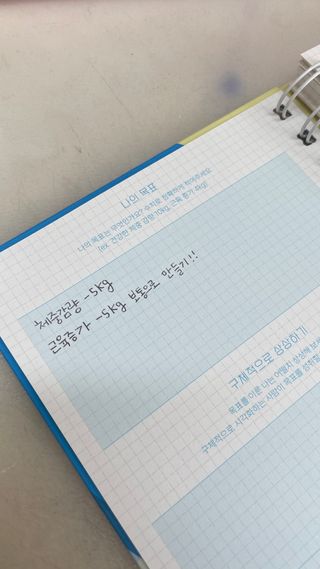 나의 목표
나의 목표는 무엇인가요? 수치로 정확하게 적어주세요.
(ex. 건강한 체중 감량 10kg, 근육 증가 4kg)
체중감량 -5kg
근육증가 -5kg 보통으로 만들기!!
구체적으로 상상하기
목표를 이룬 나는 어떨지 상상해 보세
구체적으로 시각화하는 사람이 목표를 성취할